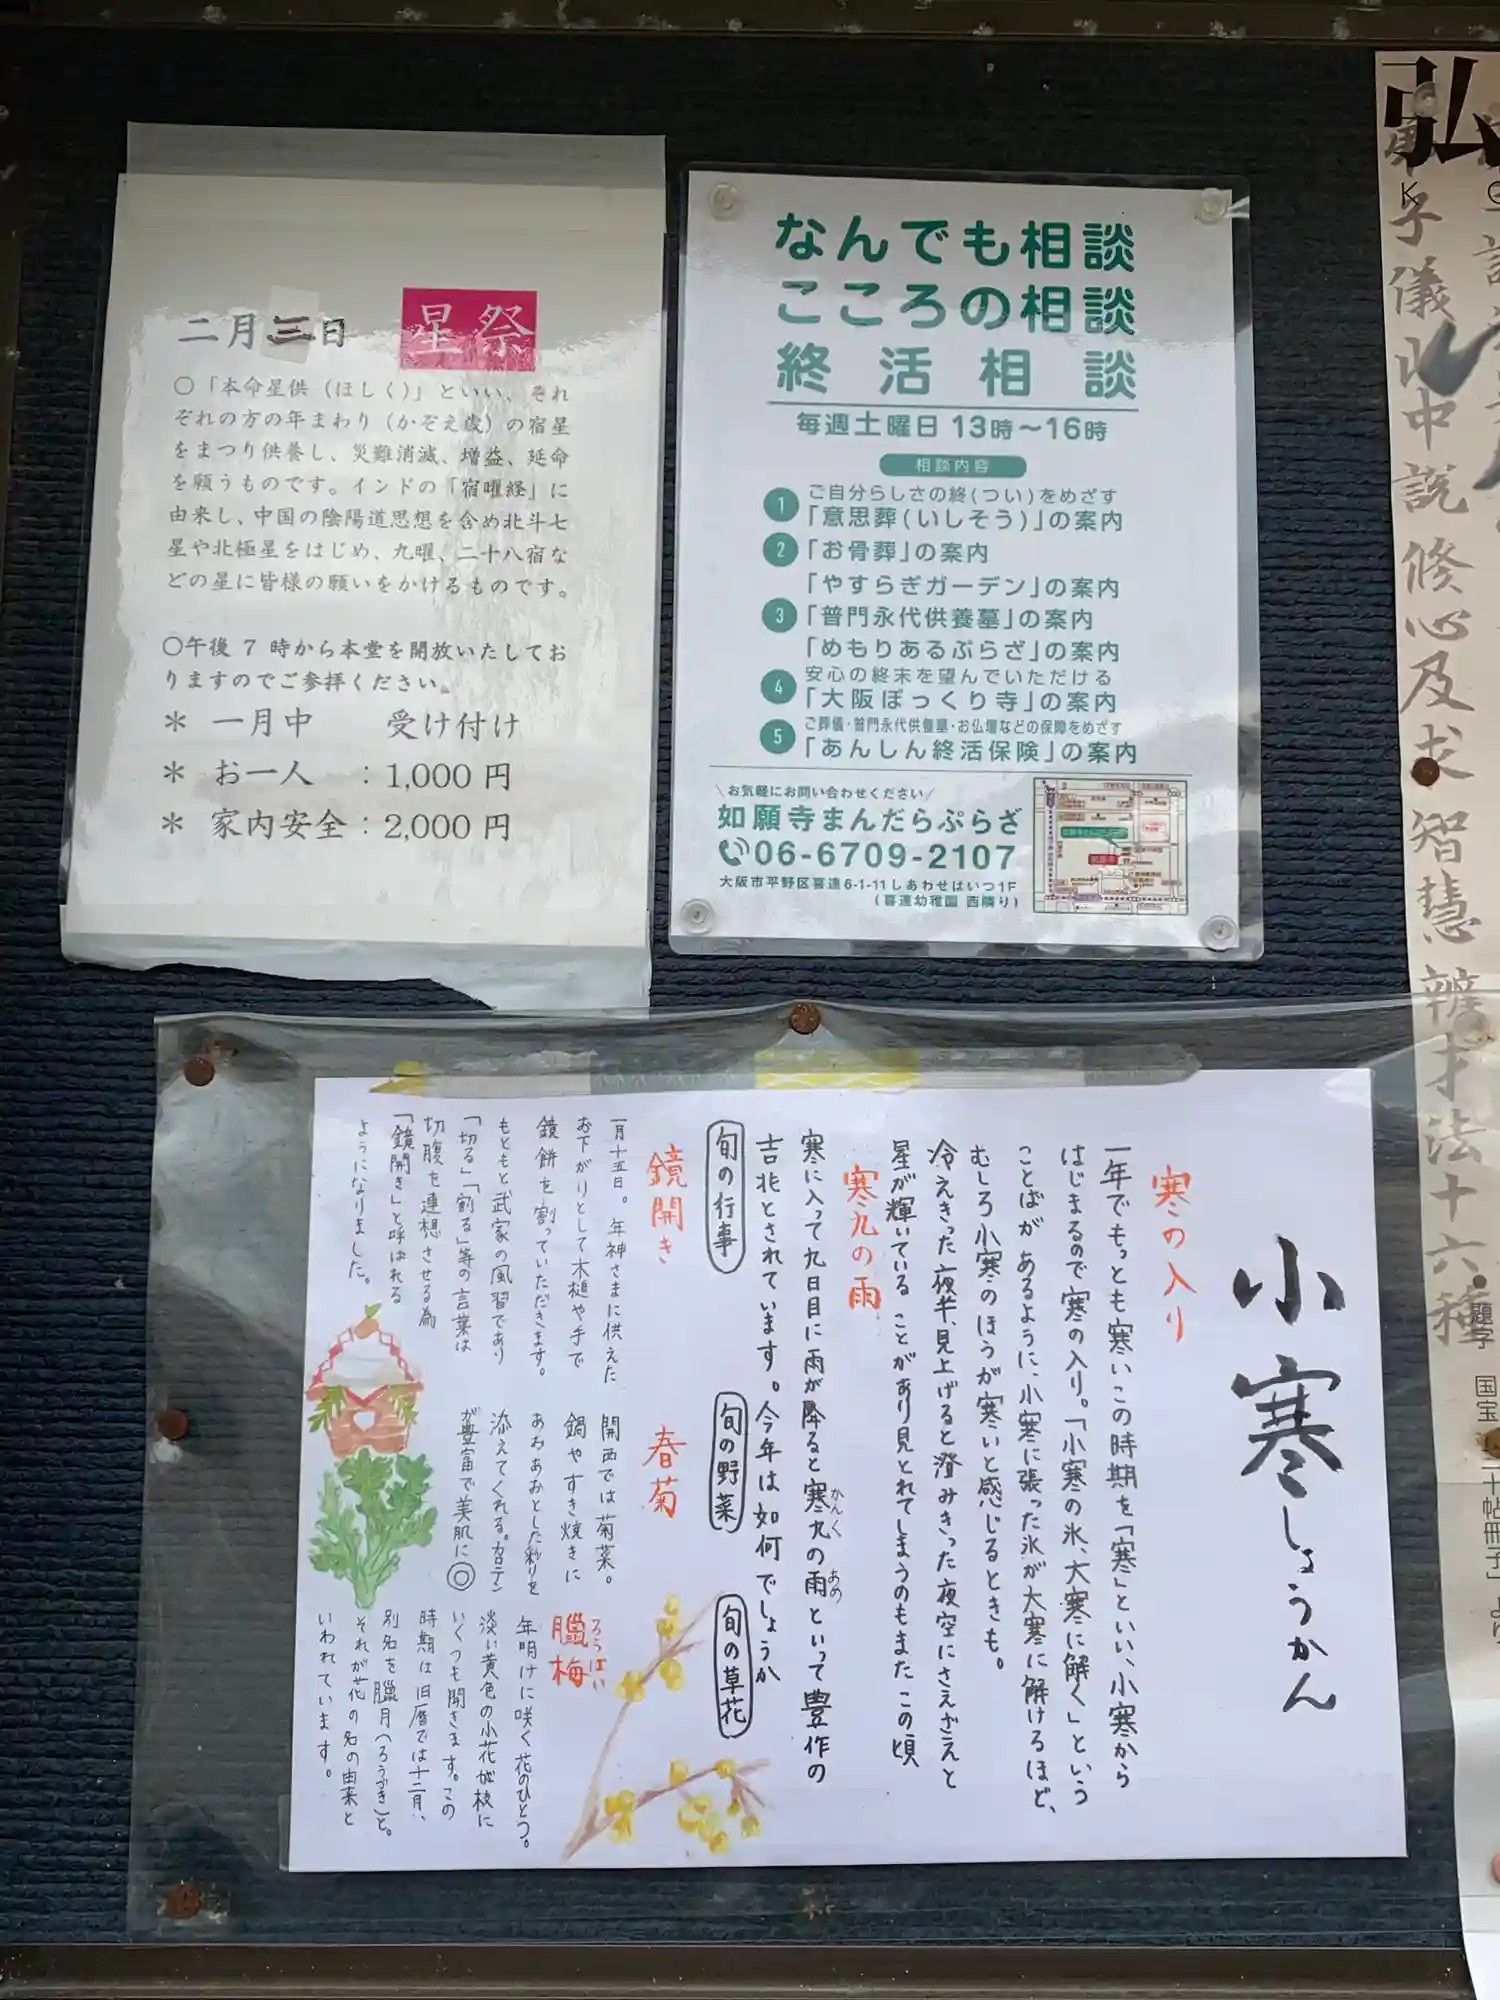 二月三日
星祭
〇「本命星供（ほしく）」といい、それ
ぞれの方の年まわり（かぞえ歳）の宿星
をまつり供養し、災難消滅、増益、延命
を願うものです。インドの「宿曜経」に
由来し、中国の陰陽道思想を含め北斗七
星や北極星をはじめ、九曜、二十八宿な
どの星に皆様の願いをかけるものです。
〇午後 7 時から本堂を開放いたしてお
りますのでご参拝ください。
＊ 一月中 受け付け
＊ お一人 ：1,000 円
＊ 家内安全：2,000 円
なんでも相談
こころの相談
終活相談
毎週土曜日 13時〜16時
相談内容
1 ご自分らしさの終(つい)をめざす
「意思葬(いしそう)」の案内
2 「お骨葬」の案内
「やすらぎガーデン」の案内
3 「普門永代供養墓」の案内
「めもりあるぷらざ」の案内
4 安心の終末を望んでいただける
「大阪ぽっくり寺」の案内
5 ご葬儀・普門永代供養墓・お仏壇などの保障をめざす
「あんしん終活保険」の案内
\お気軽にお問い合わせください/
如願寺まんだらぷらざ
06-6709-2107
大阪市平野区喜連6-1-11しあわせはいつ1F
(喜連幼稚園 西隣り)
小寒しょうかん
寒の入り
一年でもっとも寒いこの時期を「寒」といい、小寒から
はじまるので寒の入り。「小寒の氷、大寒に解く」という
ことばがあるように、小寒に張った氷が大寒に解けるほど、
むしろ小寒のほうが寒いと感じるときも。
冷えきった夜半、見上げると澄みきった夜空にさえざえと
星が輝いていることがあり見とれてしまうのもまたこの頃
寒九の雨
寒に入って九日目に雨が降ると寒九の雨といって豊作の
かんく
あめ
吉兆とされています。今年は如何でしょうか
旬の行事
鏡開き
一月十五日。年神さまに供えた
お下がりとして木槌や手で
鏡餅を割っていただきます。
もともと武家の風習であり
「切る」「割る」等の言葉は
切腹を連想させる為
「鏡開き」と呼ばれる
ようになりました。
旬の野菜
春菊
関西では菊菜。
鍋やすき焼きに
あおあおとした彩りを
添えてくれる。カロテン
が豊富で美肌に◎
旬の草花
臘梅
ろうばい
年明けに咲く花のひとつ。
淡い黄色の小花が枝に
いくつも開きます。この
時期は旧暦では十二月、
別名を臘月(ろうげつ)と。
それが花の名の由来と
いわれています。
弘
子儀
中説
修心及求
智慧
辨才法十六種
題字
国宝
十帖冊子」より